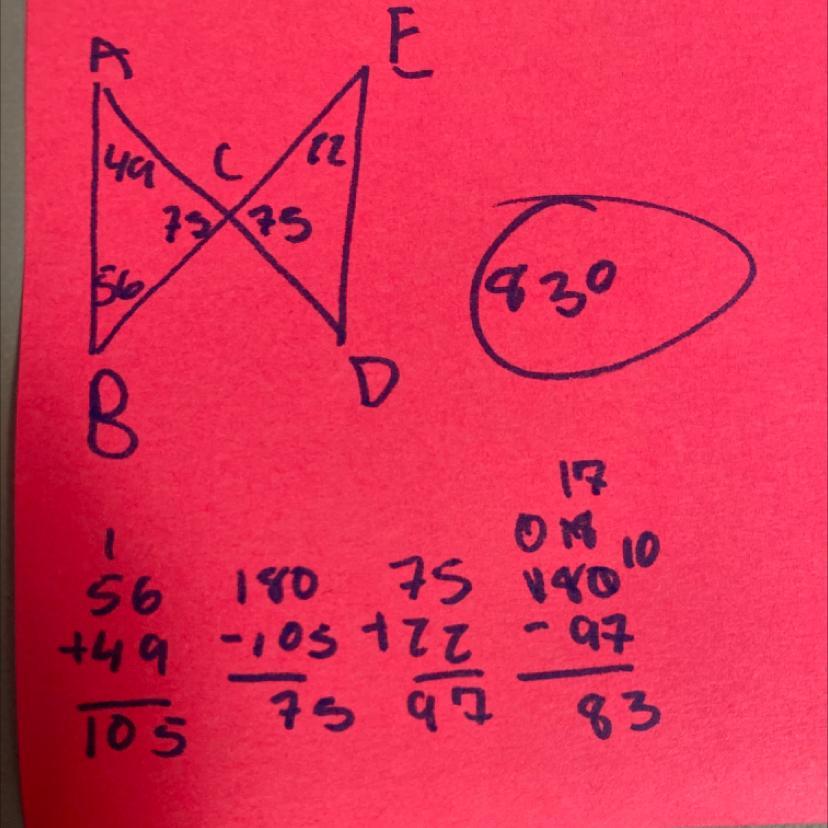 A
E
49
22
C
75
75
56
B
D
83°
1
56
+49
105
180
-105
75
75
+22
97
17
0 18 10
180
-97
83